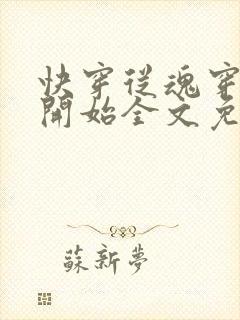 快穿從魂穿
開始全文免
蘇新夢